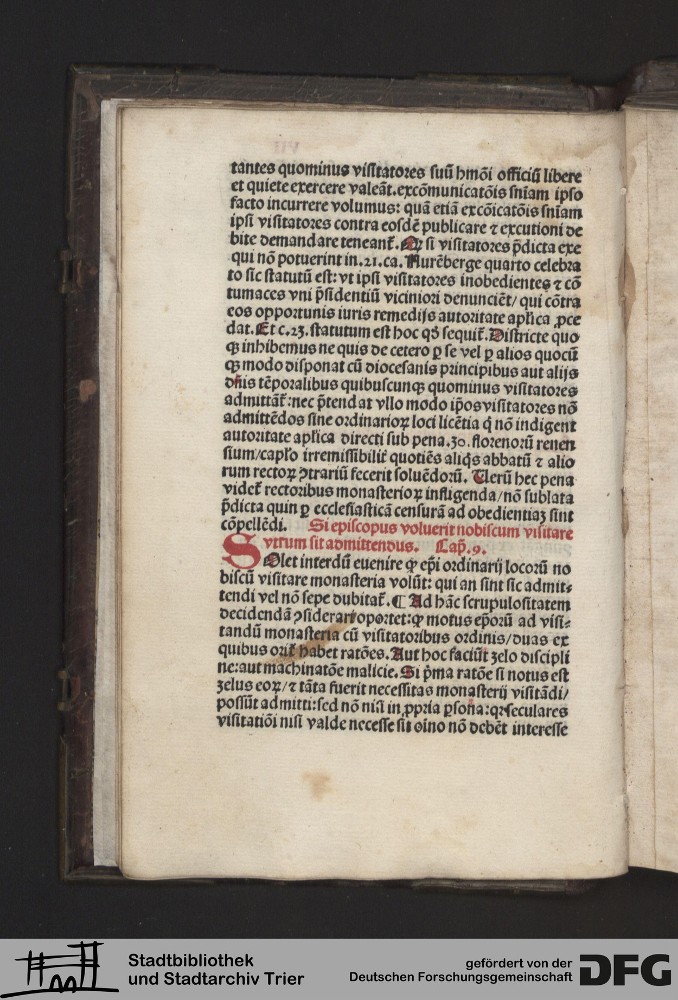 tantes quominus visitatores suū hmōi officiū libere
et quiete exercere valeāt. excōmunicatōis snīam ipso
facto incurrere volumus: quā etiā excōicatōis snīam
ipsi visitatores contra eosdē publicare ⁊ excutioni de
bite demandare teneant̄. Qꝛ si visitatores p̄dicta exe
qui nō potuerint in .21. ca. Nurēberge quarto celebra
to sic statutū est: vt ipsi visitatores inobedientes ⁊ cō
tumaces vni p̄sidentiū viciniori denunciēt/ qui cōtra
eos opportunis iuris remedijs autoritate apl̓ica ꝓce
dat. Et c. 23. statutum est hoc qđ sequit̄. Districte quo
qꝫ inhibemus ne quis de cetero ꝑ se vel ꝑ alios quocū
qꝫ modo disponat cū diocesanis principibus aut alijs
dn̄is tēporalibus quibuscunqꝫ quominus visitatores
admittāt̄: nec p̄tendat vllo modo ip̄os visitatores nō
admittēdos sine ordinarioꝝ loci licētia q̇ nō indigent
autoritate apl̓ica directi sub pena .30. florenorū renen
sium/caplo irremissibilit̄ quotiēs aliq̇s abbatū ⁊ alio
rum rectoꝝ ꝯtrariū fecerit soluēdorū. Uerū hec pena
videt̄ rectoribus monasterioꝝ infligenda/ nō sublata
p̄dicta quin ꝑ ecclesiasticā censurā ad obedientiaꝫ sint
cōpellēdi. Si episcopus voluerit nobiscum visitare
vtrum sit admittendus. Cap̄. 9.
SOlet interdū euenire ꝙ ep̄i ordinarij locorū no
biscū visitare monasteria volūt: qui an sint sic admit⸗
tendi vel nō sepe dubitat̄. ¶ Ad hāc scrupulositatem
decidendā ꝯsiderari oportet: ꝙ motus ep̄orū ad visi⸗
tandū monasteria cū visitatoribus ordinis/ duas ex
quibus orit̄ habet ratōes. Aut hoc faciūt zelo discipli
ne: aut machinatōe malicie. Si p̄ma ratōe si notus est
zelus eoꝝ/ ⁊ tāta fuerit necessitas monasterij visitādi/
possūt admitti: sed nō nisi in ꝓpria ꝑsona: qꝛ seculares
visitatiōi nisi valde necesse sit oīno nō debēt interesse
Stadtbibliothek
und Stadtarchiv Trier
gefördert von der
Deutschen Forschungsgemeinschaft
DFG